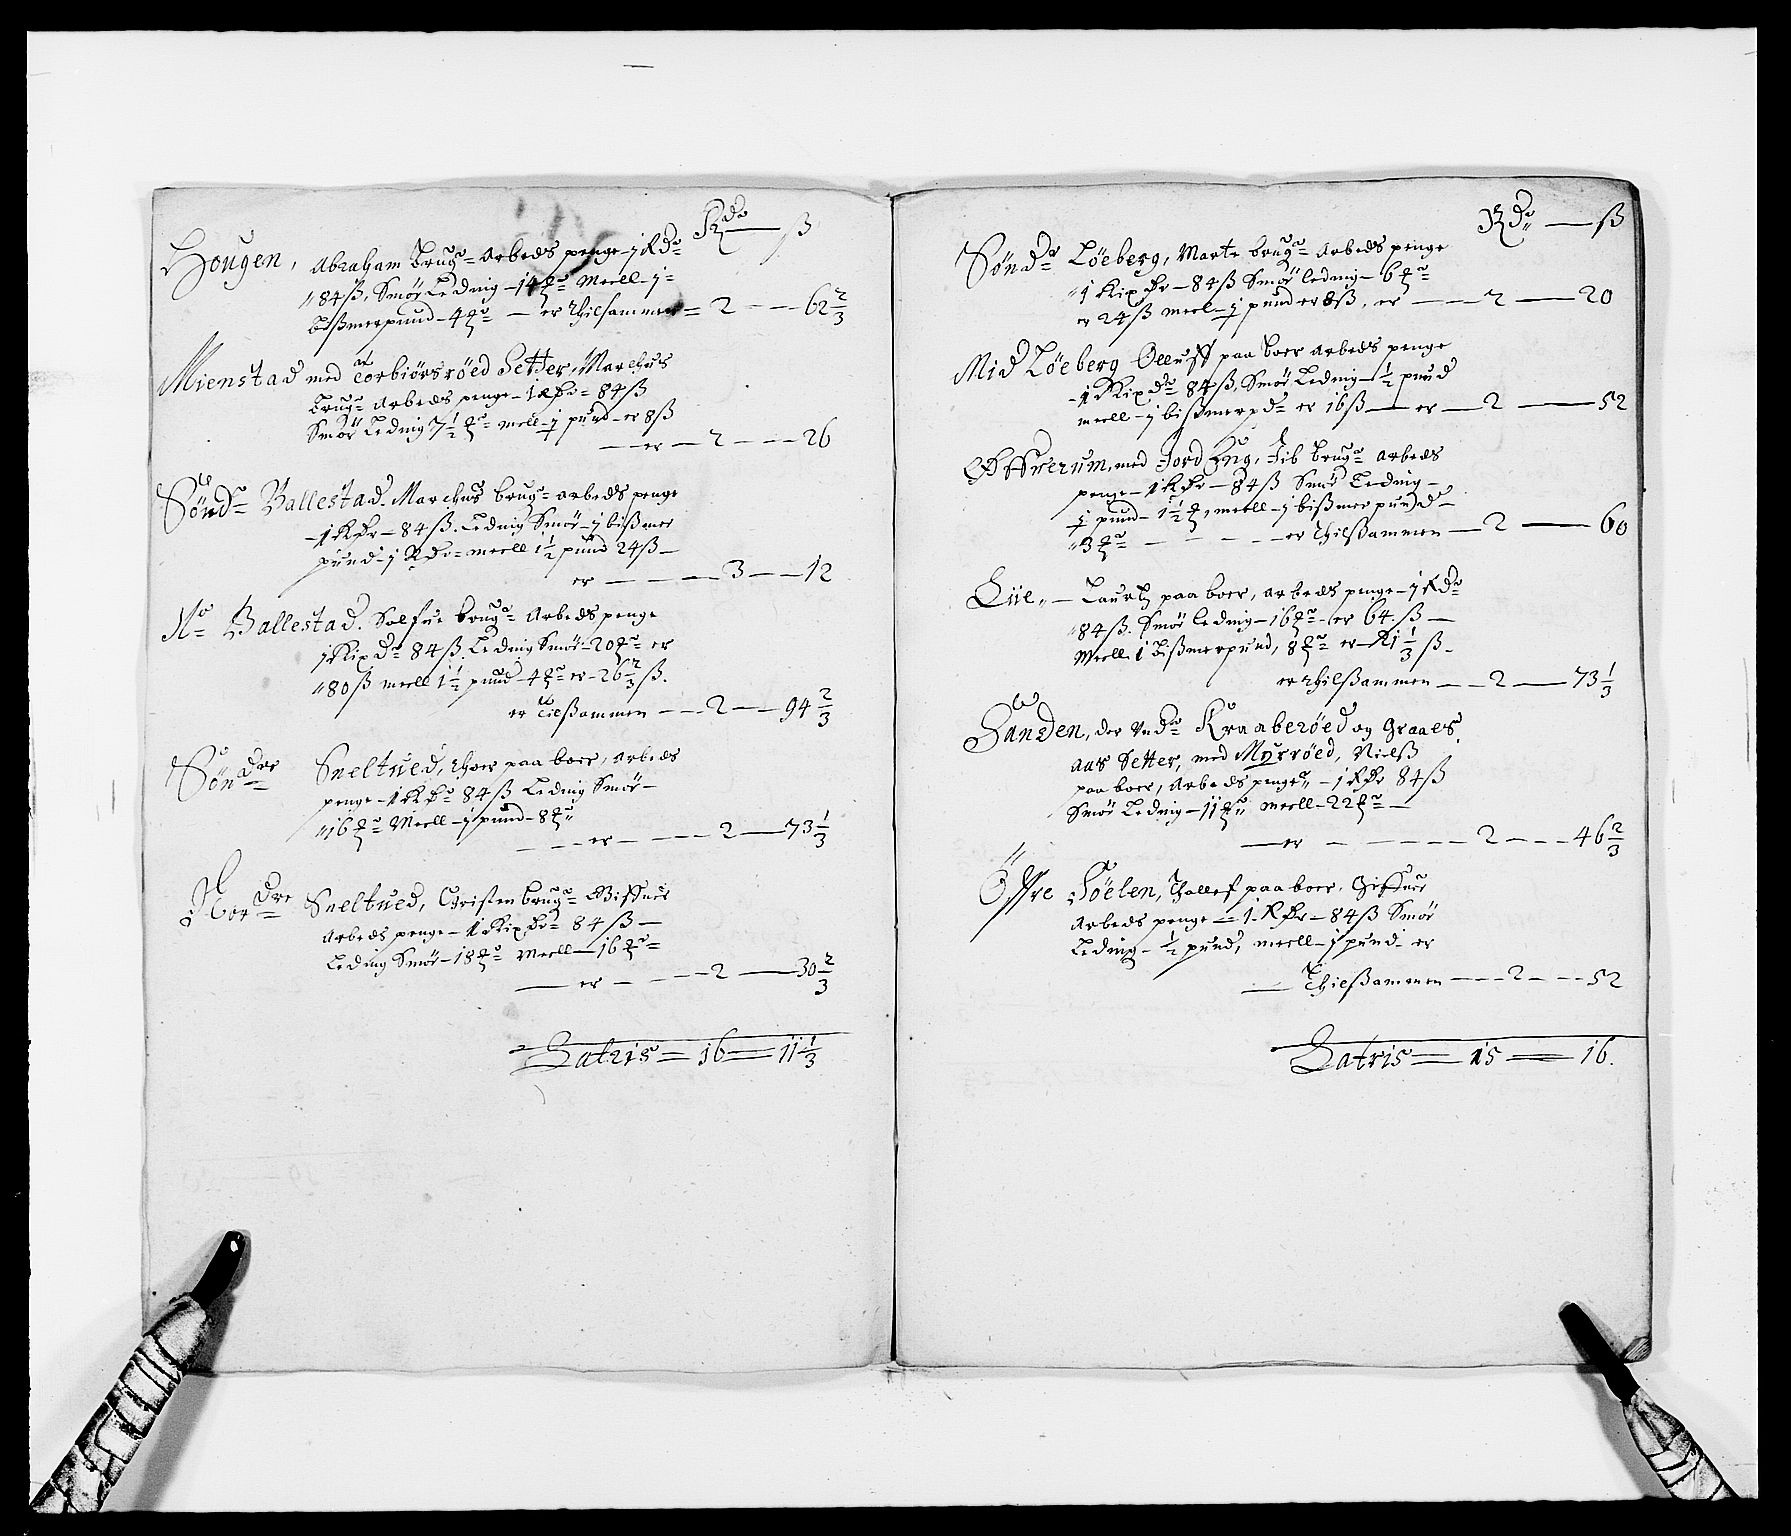 Rdr — ß
Hougen, Abraham brugr Arbeds penge - j Rdr
84 ß, Smør Ledning - 14 mrk Meell - j
Bißmerpund - 4 mrk — er Thilsammen = 2 - - - 62 2/3
Mienstad med Torbiørsrøed Setter, Marchus
brugr Arbeds penge - 1 Rdr 84 ß
Smør Ledning 7 1/2 mrk mell - j pund - er 8 ß
— er — 2 - - - 26
Søndr Ballestad. Marchus brugr arbeds penge
- 1 Rdr - 84 ß. Ledning Smør - j bißmer
pund - j Rdr - meell 1 1/2 pund 24 ß —
er — — — 3 — 12
No Ballestad. Solfue brugr Arbeds penge
j Rixdr 84 ß Ledning Smør - 20 mrk er
80 ß meell 1 1/2 pund - 4 mrk er - 26 2/3 ß.
er Tilßammen - - - 2 - - - 94 2/3
Søndre Sneltued, Thor paa boer, arbeds
penge - 1 Rdr 84 ß Leding Smør -
16 mrk Meell - j pund - 8 mrk
- - - er - - - 2 — 73 1/3
Nordre Sneltued, Christen brugr
Arbeds penge - 1 Rixdr 84 ß —
Leding Smør - 18 mrk Meell — 16 mrk
— er - - - 2 — 30 2/3
Latris = 16 = 11 1/3
Rdr — ß
Søndr Løeberg, Marte brugr Arbeds penge
1 Rixdr - 84 ß Smør ledning - 6 mrk
er 24 ß meel - j pund er 8 ß, er — — 2 — 20
Mid Løeberg Olluff paa boer arbeds penge
- 1 Rixdr 84 ß, Smør Ledning - 1/2 pund
meell - j bißmerpd er 16 ß — er — 2 — 52
med Jord Eng, Jib brugr arbeds
penge - 1 Rdr - 84 ß Smør Leding -
j pund - 1 1/2 mrk, meell - j bißmer pund -
3 mrk - - - - er Thilßammen — 2 — 60
Lüe — Lauritz paa boer, arbeds penge - j Rdr
84 ß. Smør leding - 16 mrk - er 64. ß —
Meell 1 bißmerpund, 8 mrk er - 21 1/3 ß -
er Thilßammen - - 2 — 73 1/3
Sanden, der Undr Kraaberøed og Graaes
aas Setter, med Myrrøed, Nielß
paa boer, Arbeds penge - j Rdr 84 ß
Smør Leding - 11 mrk meell - 22 mrk —
— er - - - - - 2 - - - 46 2/3
Øffre Føelen, Tholef paa boer,
Arbeds penge = 1 Rdr - 84 ß Smør
Leding - 1/2 pund, meell - j pund - er
— Thilßammen - - - 2 - - - 52
Latris = 15 = 16.